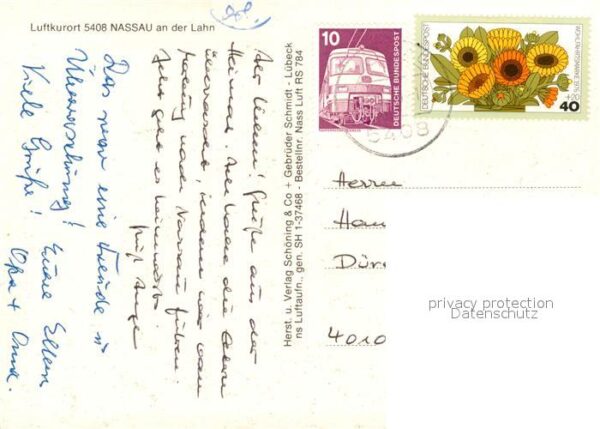 Luftkurort 5408 NASSAU an der Lahn
Ihr Lieben! Grüße aus der
Heimat. Wir haben die Eltern
überrascht, indem wir von
nach Nassau fuhren.
geht es heimwärts.
Das war eine Freude u.
Überraschung!
Viele Grüße! Eure Eltern
Opa + Oma.
Herst. u. Verlag Schöning & Co + Gebrüder Schmidt - Lübeck
ns Luftaufn., gen. SH 1-37468 - Bestellnr. Nass Luft RS 784
10
DEUTSCHE BUNDESPOST
DEUTSCHE BUNDESPOST
WOHLFAHRTSMARKE 1976
40
5408
Herrn
Han
Dür
4010
privacy protection
Datenschutz